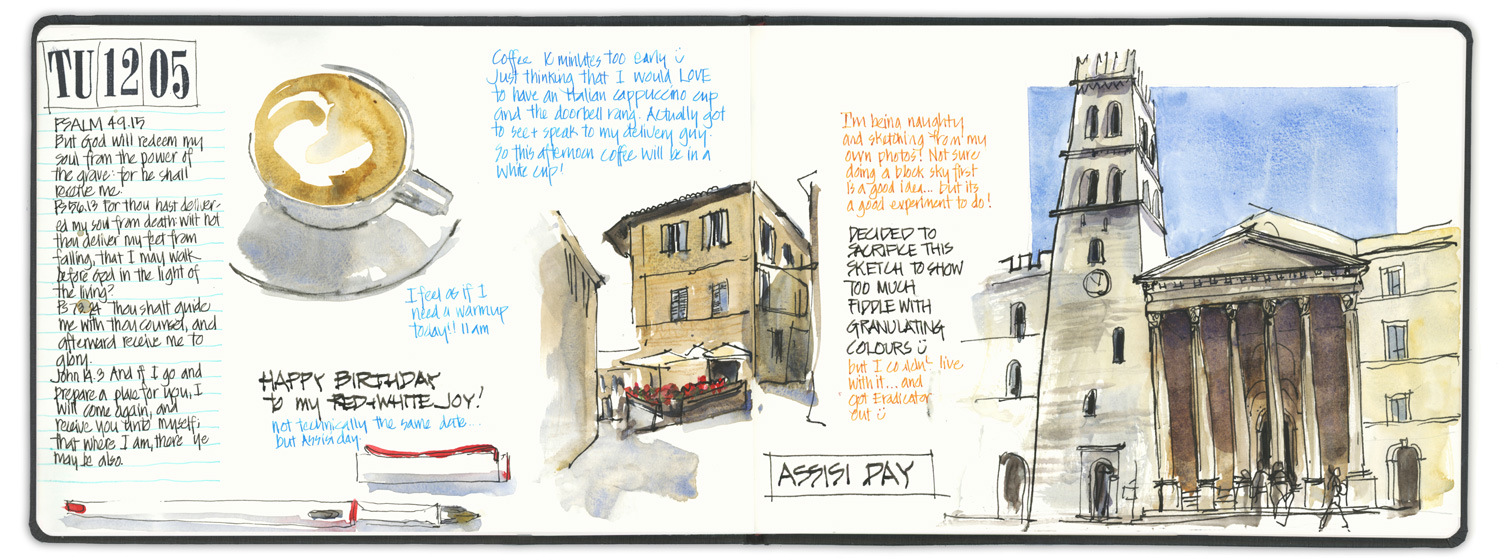 TU 12 05
PSALM 49.15
But God will redeem my
soul from the power of
the grave: for he shall
receive me.
Ps 56.13 For thou hast deliver-
ed my soul from death: wilt not
thou deliver my feet from
falling, that I may walk
before God in the light of
the living?
Ps 73.24 Thou shalt guide
me with thou counsel, and
afterward receive me to
glory.
John 14.3 And if I go and
prepare a place for you, I
will come again, and
receive you unto myself;
that where I am, there ye
may be also.
Coffee 10 minutes too early
Just thinking that I would LOVE
to have an Italian cappuccino cup
and the doorbell rang. Actually got
to see + speak to my delivery guy.
So this afternoon coffee will be in a
white cup!
I feel as if I
need a warmup
today!! 11am
HAPPY BIRTHDAY
to my RED+WHITE JOY!
not technically the same date....
but Assisi day.
I'm being naughty
and sketching from my
own photos! Not sure
doing a block sky first
is a good idea... but its
a good experiment to do!
DECIDED TO
SACRIFICE THIS
SKETCH TO SHOW
TOO MUCH
FIDDLE WITH
GRANULATING
COLOURS
but I couldn't live
with it... and
got Eradicator
out
ASSISI DAY